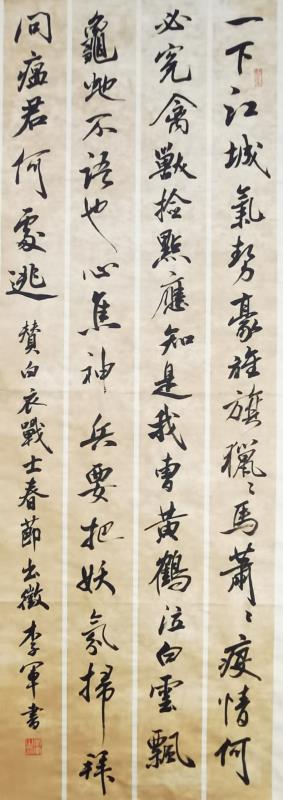 一下江城氣勢豪旌旗獵獵馬蕭蕭疫情何
必究禽獸撿點應知是我曹黃鶴泣白雲飄
龜蛇不語也心焦神兵要把妖氛掃
問瘟君何處逃 贊白衣戰士春節出徵 李軍書